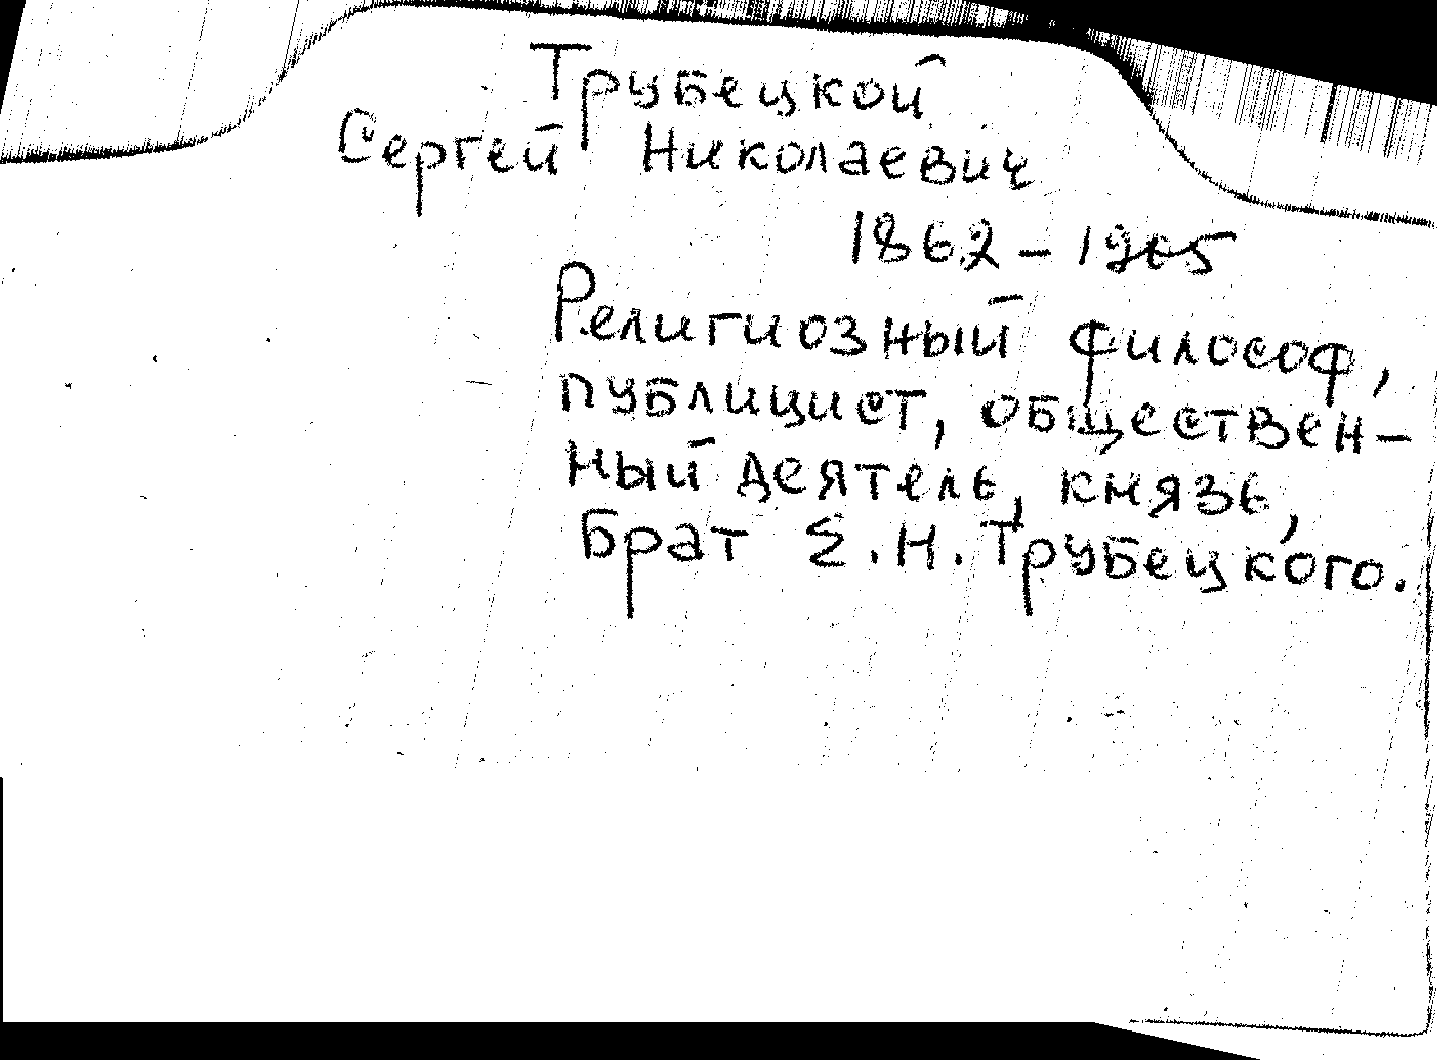 Трубецкой
Сергей Николаевич
1862 – 1905
Религиозный философ,
публицист, обществен-
ный деятель, князь,
брат Е.Н. Трубецкого.